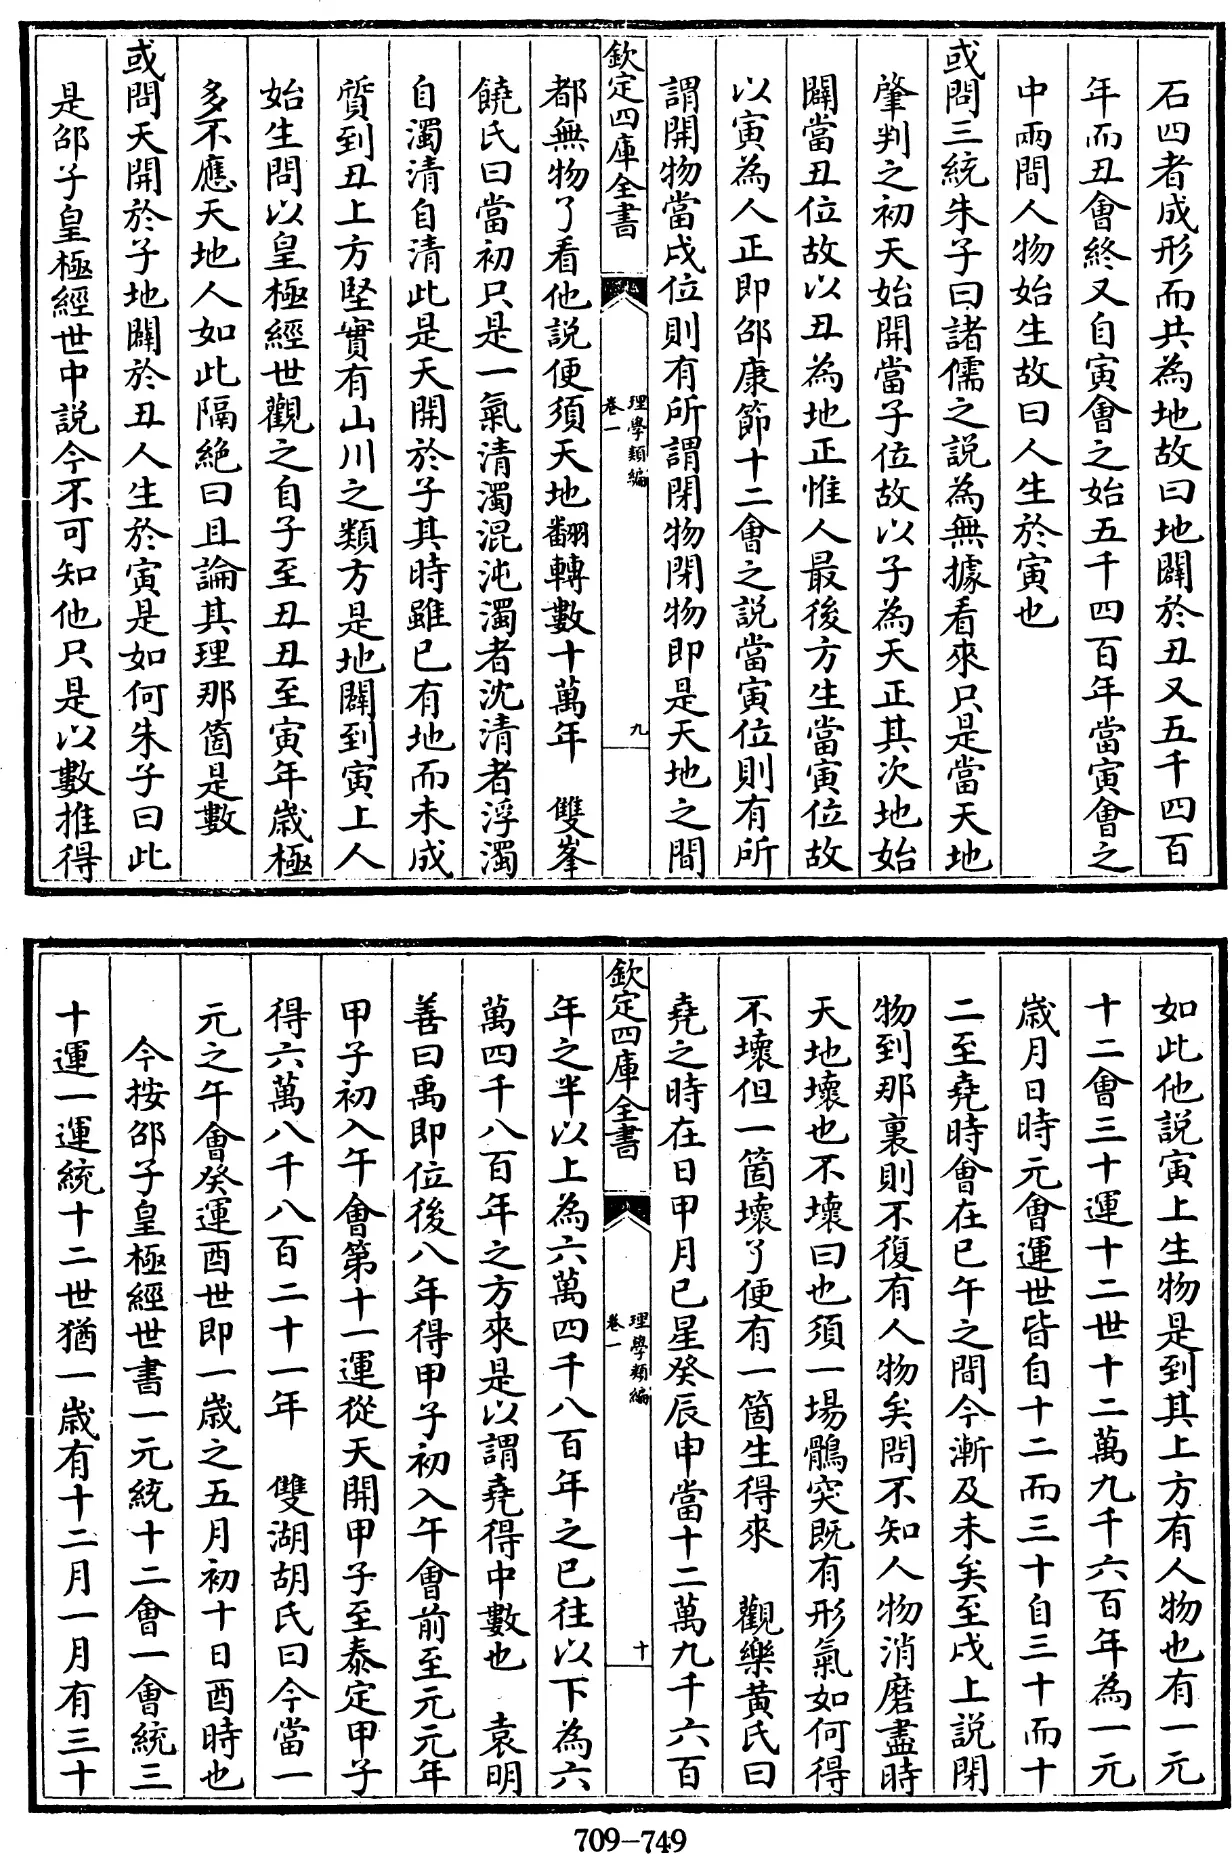 石四者成形而共為地故曰地闢於丑又五千四百
年而丑會終又自寅會之始五千四百年當寅會之
中兩間人物始生故曰人生於寅也
或問三統朱子曰諸儒之說為無據看來只是當天地
肇判之初天始開當子位故以子為天正其次地始
闢當丑位故以丑為地正惟人最後方生當寅位故
以寅為人正即邵康節十二會之說當寅位則有所
謂開物當戌位則有所謂閉物閉物即是天地之間
欽定四庫全書
理學類編
卷一
九
都無物了看他說便須天地翻轉數十萬年　雙峯
饒氏曰當初只是一氣清濁混沌濁者沈清者浮濁
自濁清自清此是天開於子其時雖已有地而未成
質到丑上方堅實有山川之類方是地闢到寅上人
始生問以皇極經世觀之自子至丑丑至寅年歲極
多不應天地人如此隔絶曰且論其理那箇是數
或問天開於子地闢於丑人生於寅是如何朱子曰此
是邵子皇極經世中說今不可知他只是以數推得
如此他說寅上生物是到其上方有人物也有一元
十二會三十運十二世十二萬九千六百年為一元
歲月日時元會運世皆自十二而三十自三十而十
二至堯時會在巳午之間今漸及未矣至戌上說閉
物到那裏則不復有人物矣問不知人物消磨盡時
天地壞也不壞曰也須一場鶻突既有形氣如何得
不壞但一箇壞了便有一箇生得來　觀樂黃氏曰
堯之時在日甲月巳星癸辰申當十二萬九千六百
欽定四庫全書
理學類編
卷一
十
年之半以上為六萬四千八百年之已往以下為六
萬四千八百年之方來是以謂堯得中數也　袁明
善曰禹即位後八年得甲子初入午會前至元元年
甲子初入午會第十一運從天開甲子至泰定甲子
得六萬八千八百二十一年　雙湖胡氏曰今當一
元之午會癸運酉世即一歲之五月初十日酉時也
今按邵子皇極經世書一元統十二會一會統三
十運一運統十二世猶一歲有十二月一月有三十
709-749